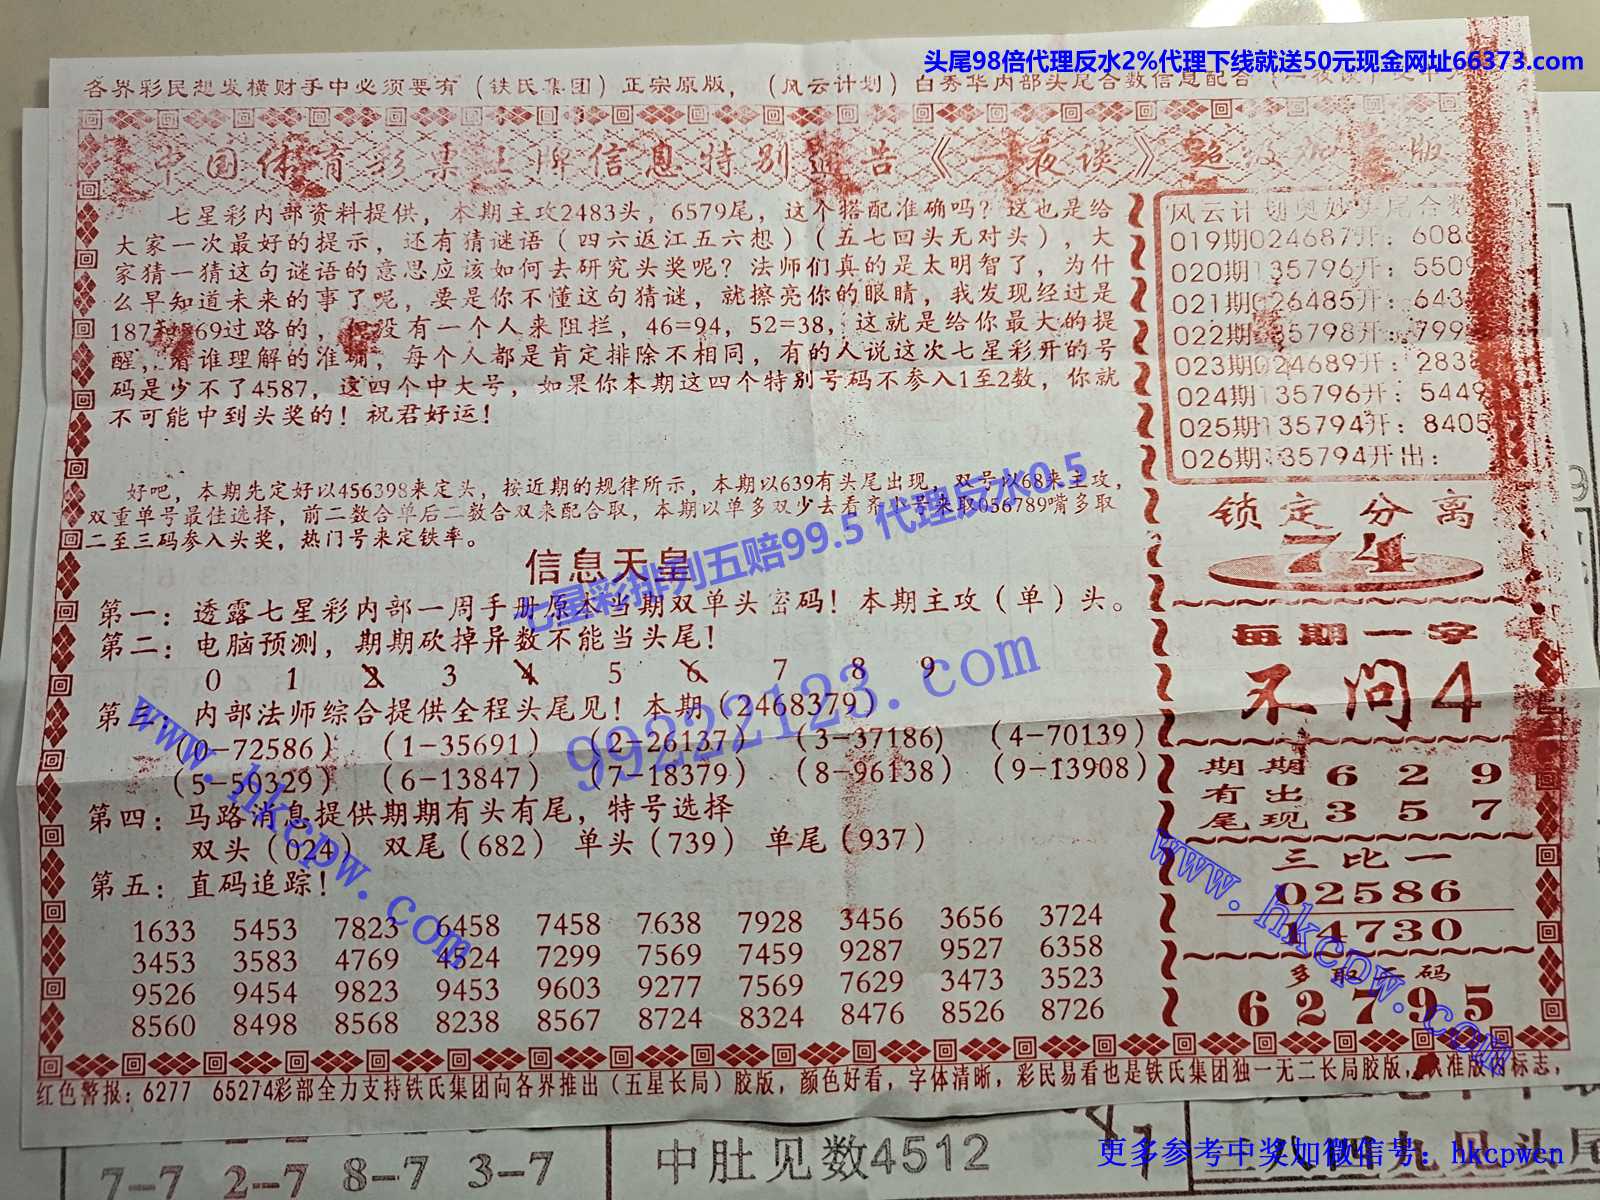 头尾98倍代理反水2%代理下线就送50元现金网址66373.com
各界彩民想发横财手中必须要有（铁氏集团）正宗原版，（风云计划）白秀华内部头尾合数信息配合
中国体育彩票王牌信息特别通告《一夜谈》超级 版
七星彩内部资料提供，本期主攻2483头，6579尾，这个搭配准确吗？这也是给
大家一次最好的提示，还有猜谜语（四六返江五六想）（五七回头无对头），大
家猜一猜这句谜语的意思应该如何去研究头奖呢？法师们真的是太明智了，为什
么早知道未来的事了呢，要是你不懂这句猜谜，就擦亮你的眼睛，我发现经过是
187 69过路的，但没有一个人来阻拦，46=94，52=38，这就是给你最大的提
醒，看谁理解的准确，每个人都是肯定排除不相同，有的人说这次七星彩开的号
码是少不了4587，这四个中大号，如果你本期这四个特别号码不参入1至2数，你就
不可能中到头奖的！祝君好运！
好吧，本期先定好以456398来定头，按近期的规律所示，本期以639有头尾出现，双号以68来主攻，
双重单号最佳选择，前二数合单后二数合双来配合取，本期以单多双少去看齐小号来取056789嘴多取
二至三码参入头奖，热门号来定铁率。
信息天皇
第一：透露七星彩内部一周手册原本当期双单头密码！本期主攻（单）头。
第二：电脑预测，期期砍掉异数不能当头尾！
0 1 2 3 4 5 6 7 8 9
第三：内部法师综合提供全程头尾见！本期（2468379）
（0-72586）（1-35691）（2-26137）（3-37186）（4-70139）
（5-50329）（6-13847）（7-18379）（8-96138）（9-13908）
第四：马路消息提供期期有头有尾，特号选择
双头（024） 双尾（682） 单头（739） 单尾（937）
第五：直码追踪！
1633 5453 7823 6458 7458 7638 7928 3456 3656 3724
3453 3583 4769 4524 7299 7569 7459 9287 9527 6358
9526 9454 9823 9453 9603 9277 7569 7629 3473 3523
8560 8498 8568 8238 8567 8724 8324 8476 8526 8726
风云计划奥妙头尾合数
019期024687开：608
020期135796开：550
021期026485开：643
022期135798开：799
023期024689开：283
024期135796开：5449
025期135794开：8405
026期135794开出：
锁定分离
74
每期一字
不问4
期期 6 2 9
有出
尾现 3 5 7
三比一
02586
14730
多取二码
62795
红色警报：6277 65274彩部全力支持铁氏集团向各界推出（五星长局）胶版，颜色好看，字体清晰，彩民易看也是铁氏集团独一无二长局胶版，认准版内标志，
七星彩排列五赔99.5 代理反水0.5
99222123.com
www.hkcpw.com
www.hkcpw.com
7-7 2-7 8-7 3-7
中肚见数4512
二八四九见头尾
更多参考中奖加微信号：hkcpwcn